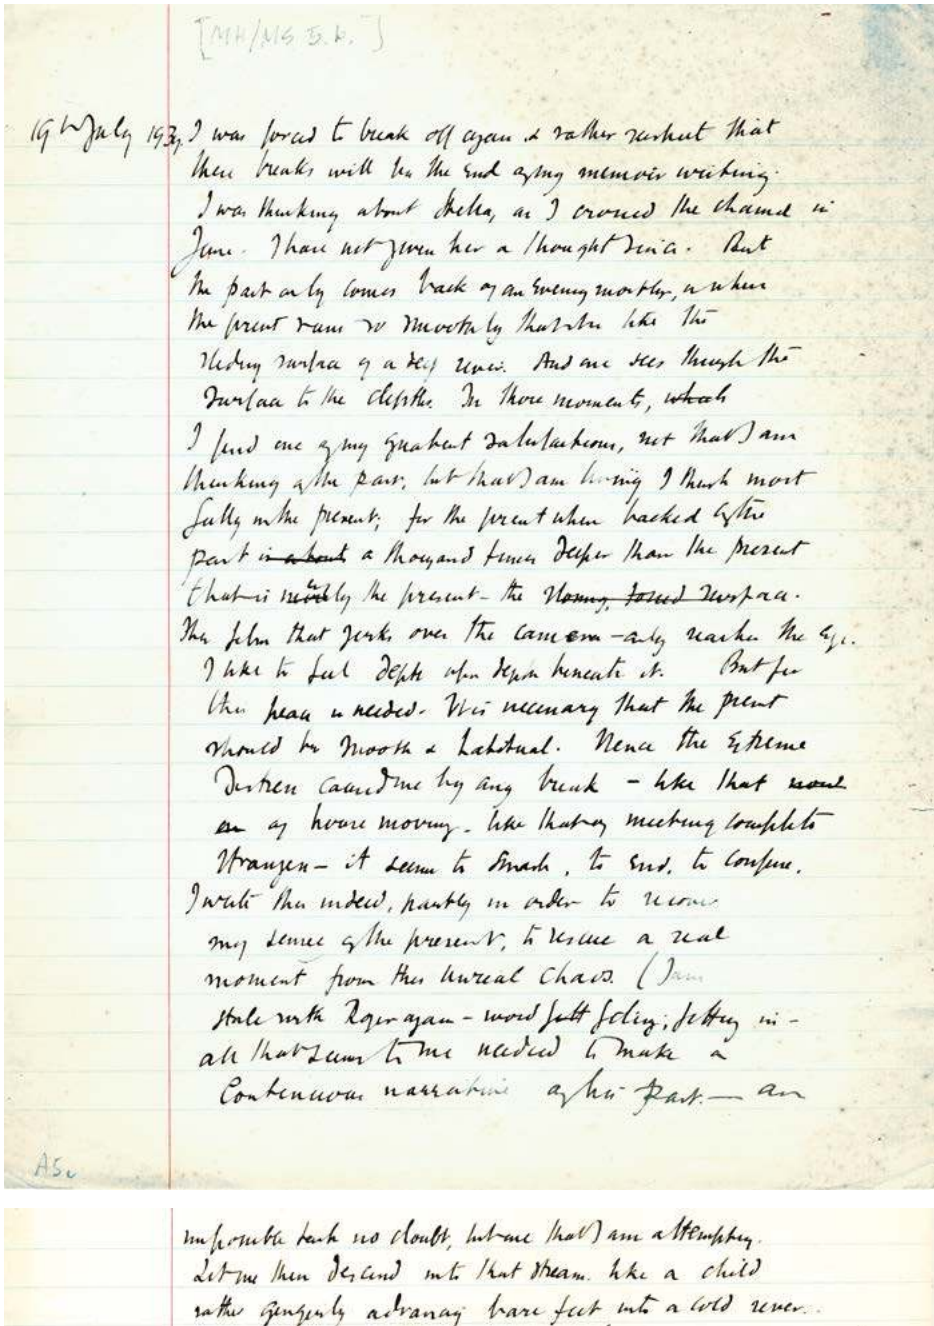 [MH/MS 5.A.]
19th July 1939. I was forced to break off again & rather suspect that
these breaks will be the end of my memoir writing.
I was thinking about Stella, as I crossed the channel in
June. I have not given her a thought since. But
the past only comes back of an evening mostly, or when
the present runs so smoothly that its like the
sliding surface of a deep river. And one sees through the
surface to the depths. In those moments,
I find one of my greatest satisfactions, not that I am
thinking of the past, but that I am living I think most
fully in the present; for the present when backed by the
past is a thousand times deeper than the present
that is the present - the
The film that jerks over the camera - only reaches the eye.
I like to feel depth upon depth beneath it. But for
this peace is needed. It is necessary that the present
should be smooth & habitual. Hence the extreme
distress caused me by any break - like that
of house moving. like that of meeting complete
strangers - it seems to smash, to end, to confuse.
I write this indeed, partly in order to recover
my sense of the present, to rescue a real
moment from this unreal chaos. (I am
stale with Roger again - word fitting in -
all that seems to me needed to make a
Continuous narrative of his past. - an
impossible task no doubt, but one that I am attempting.
Let me then descend into that stream. like a child
rather gingerly advancing bare feet into a cold river.
A5v